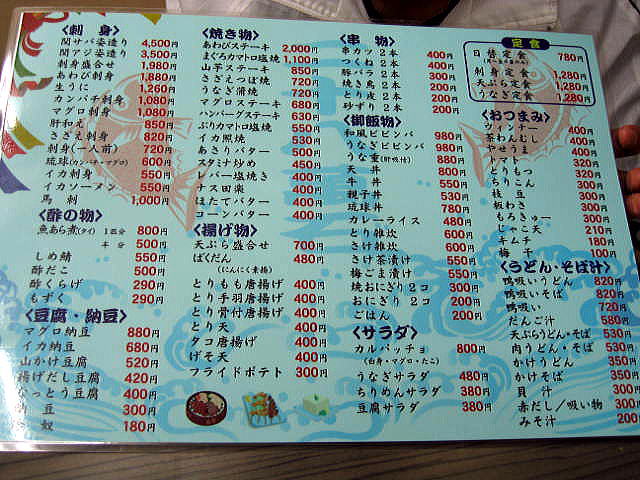 〈刺身〉
関サバ姿造り 4,500円
関アジ姿造り 3,500円
刺身盛合せ 1,980円
あわび刺身 1,880円
生うに 1,260円
カンパチ刺身 1,080円
マグロ刺身 1,080円
肝和え 850円
さざえ刺身 820円
刺身(一人前) 720円
琉球(カンパチ・マグロ) 600円
イカ刺身 550円
イカソーメン 550円
馬刺 1,000円
〈酢の物〉
魚あら煮(タイ) 1匹分 800円
半分 500円
しめ鯖 550円
酢だこ 500円
酢くらげ 290円
もずく 290円
〈豆腐・納豆〉
マグロ納豆 880円
イカ納豆 680円
山かけ豆腐 520円
揚げだし豆腐 420円
なっとう豆腐 400円
納豆 300円
冷奴 180円
〈焼き物〉
あわびステーキ 2,000円
まぐろカマトロ塩焼 1,100円
山芋ステーキ 850円
さざえつぼ焼 720円
うなぎ蒲焼 720円
マグロステーキ 680円
ハンバーグステーキ 630円
ぶりカマトロ塩焼 550円
イカ照焼 530円
あさりバター 500円
スタミナ炒め 450円
レバー塩焼き 450円
ナス田楽 400円
ほたてバター 400円
コーンバター 400円
〈揚げ物〉
天ぷら盛合せ 700円
ばくだん 480円
(にんにく素揚)
とりもも唐揚げ 400円
とり手羽唐揚げ 400円
とり骨付唐揚げ 400円
とり天 400円
タコ唐揚げ 400円
げそ天 400円
フライドポテト 300円
〈串物〉
串カツ2本 400円
つくね2本 400円
豚バラ2本 300円
焼き鳥2本 200円
とり皮2本 200円
砂ずり2本 200円
〈御飯物〉
和風ビビンバ 980円
うなぎビビンバ 980円
うな重(肝吸付) 880円
天丼 580円
牛丼 550円
親子丼 530円
琉球丼 780円
カレーライス 480円
とり雑炊 600円
さけ雑炊 600円
さけ茶漬け 550円
梅ごま漬け 550円
焼おにぎり2コ 300円
おにぎり2コ 200円
ごはん 200円
〈サラダ〉
カルパッチョ 800円
(白身・マグロ・たこ)
うなぎサラダ 480円
ちりめんサラダ 380円
豆腐サラダ 380円
定食
日替定食 780円
刺身定食 1,280円
天ぷら定食 1,280円
うなぎ定食 1,280円
〈おつまみ〉
ウィンナー 400円
茶わんむし 400円
やせうま 400円
トマト 320円
とりもつ 320円
ちりこん 300円
枝豆 300円
板わさ 300円
もろきゅー 300円
じゃこ天 210円
キムチ 180円
梅干 100円
〈うどん・そば・汁〉
鴨吸いうどん 820円
鴨吸いそば 820円
鴨吸い 720円
だんご汁 580円
天ぷらうどん・そば 530円
肉うどん・そば 530円
かけうどん 350円
かけそば 350円
貝汁 300円
赤だし/吸い物 300円
みそ汁 200円